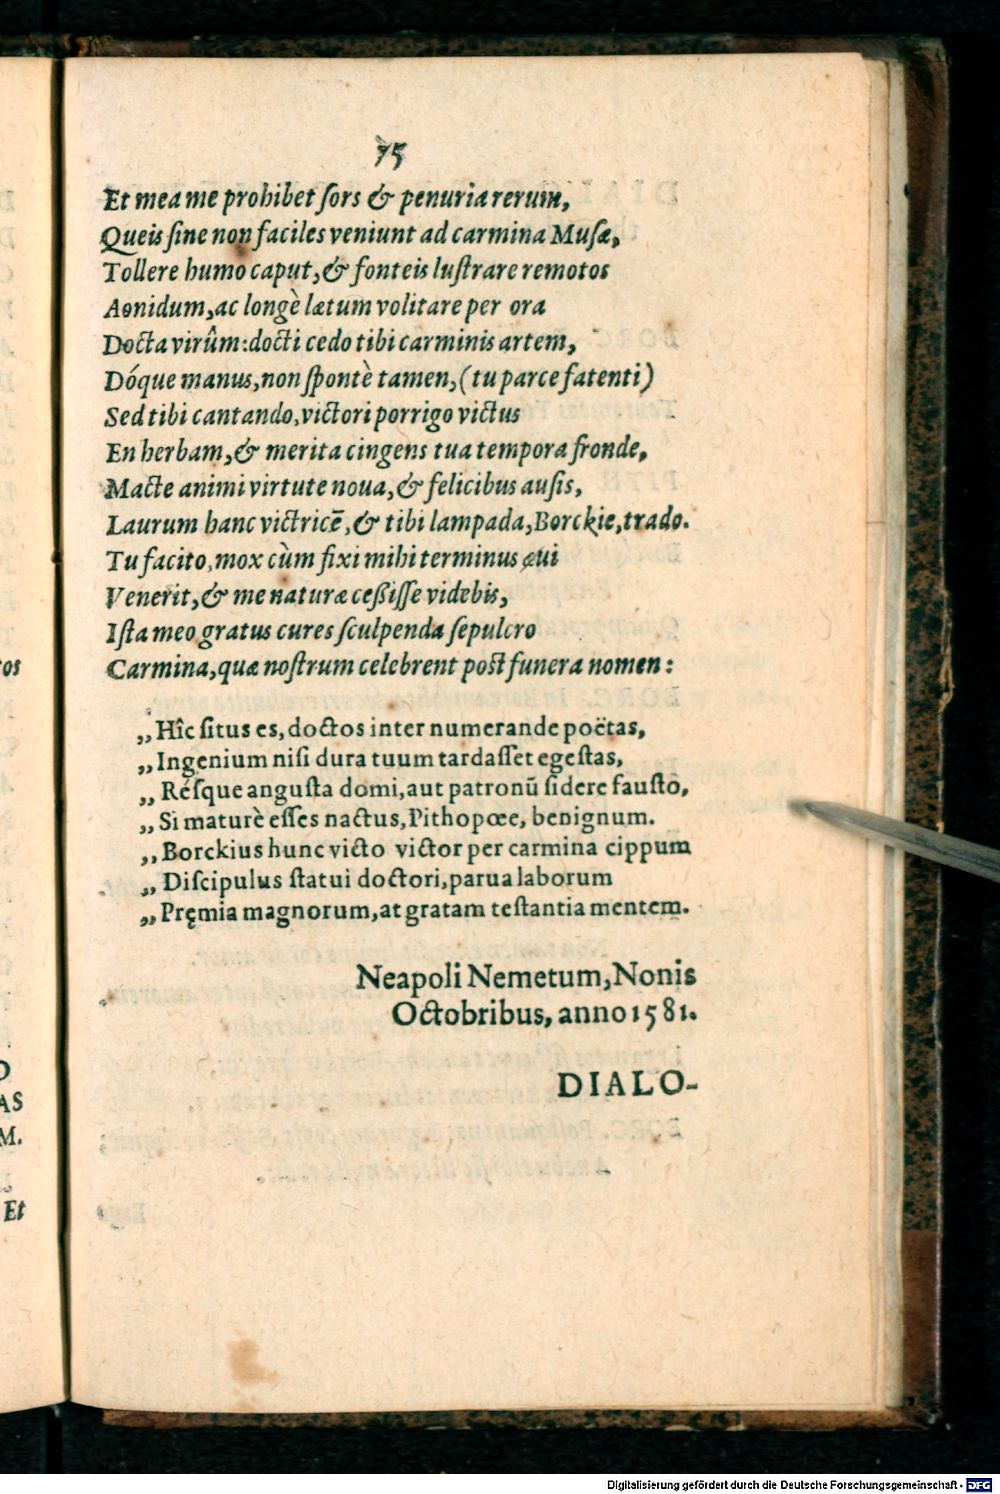 75
Et mea me prohibet ſors & penuria rerum,
Queis ſine non faciles veniunt ad carmina Muſæ,
Tollere humo caput, & fonteis luſtrare remotos
Aonidum, ac longè lætum volitare per ora
Docta virûm: docti cedo tibi carminis artem,
Dóque manus, non ſpontè tamen, (tu parce fatenti)
Sed tibi cantando, victori porrigo victus
En herbam, & merita cingens tua tempora fronde,
Macte animi virtute noua, & felicibus auſis,
Laurum hanc victricē, & tibi lampada, Borckie, trado.
Tu facito, mox cùm fixi mihi terminus æui
Venerit, & me naturæ ceßiſſe videbis,
Iſta meo gratus cures ſculpenda ſepulcro
Carmina, quæ noſtrum celebrent poſt funera nomen:
,,Hîc ſitus es, doctos inter numerande poëtas,
,,Ingenium niſi dura tuum tardaſſet egeſtas,
,,Réſque anguſta domi, aut patronū ſidere fauſto,
,,Si maturè eſſes nactus, Pithopœe, benignum.
,,Borckius hunc victo victor per carmina cippum
,,Diſcipulus ſtatui doctori, parua laborum
,,Pręmia magnorum, at gratam teſtantia mentem.
Neapoli Nemetum, Nonis
Octobribus, anno 1581.
DIALO-
tos
AS
M.
Et
Digitalisierung gefördert durch die Deutsche Forschungsgemeinschaft - DFG